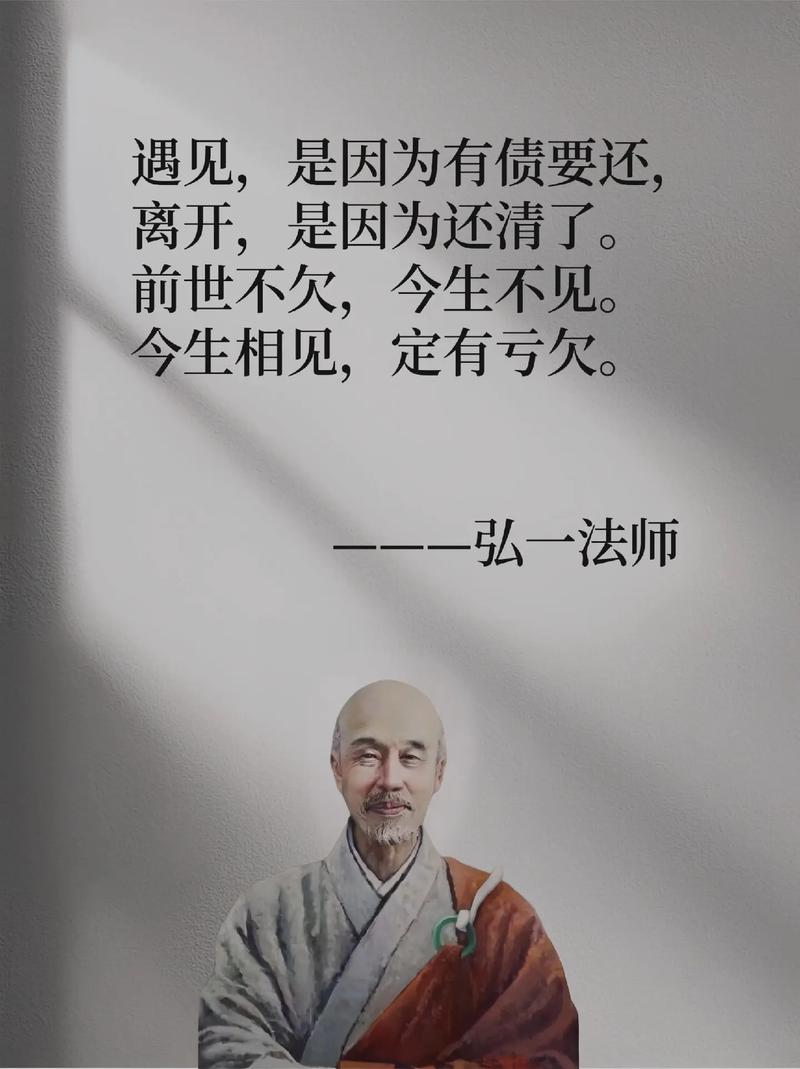 遇见，是因为有债要还，
离开，是因为还清了。
前世不欠，今生不见。
今生相见，定有亏欠。
———弘一法师